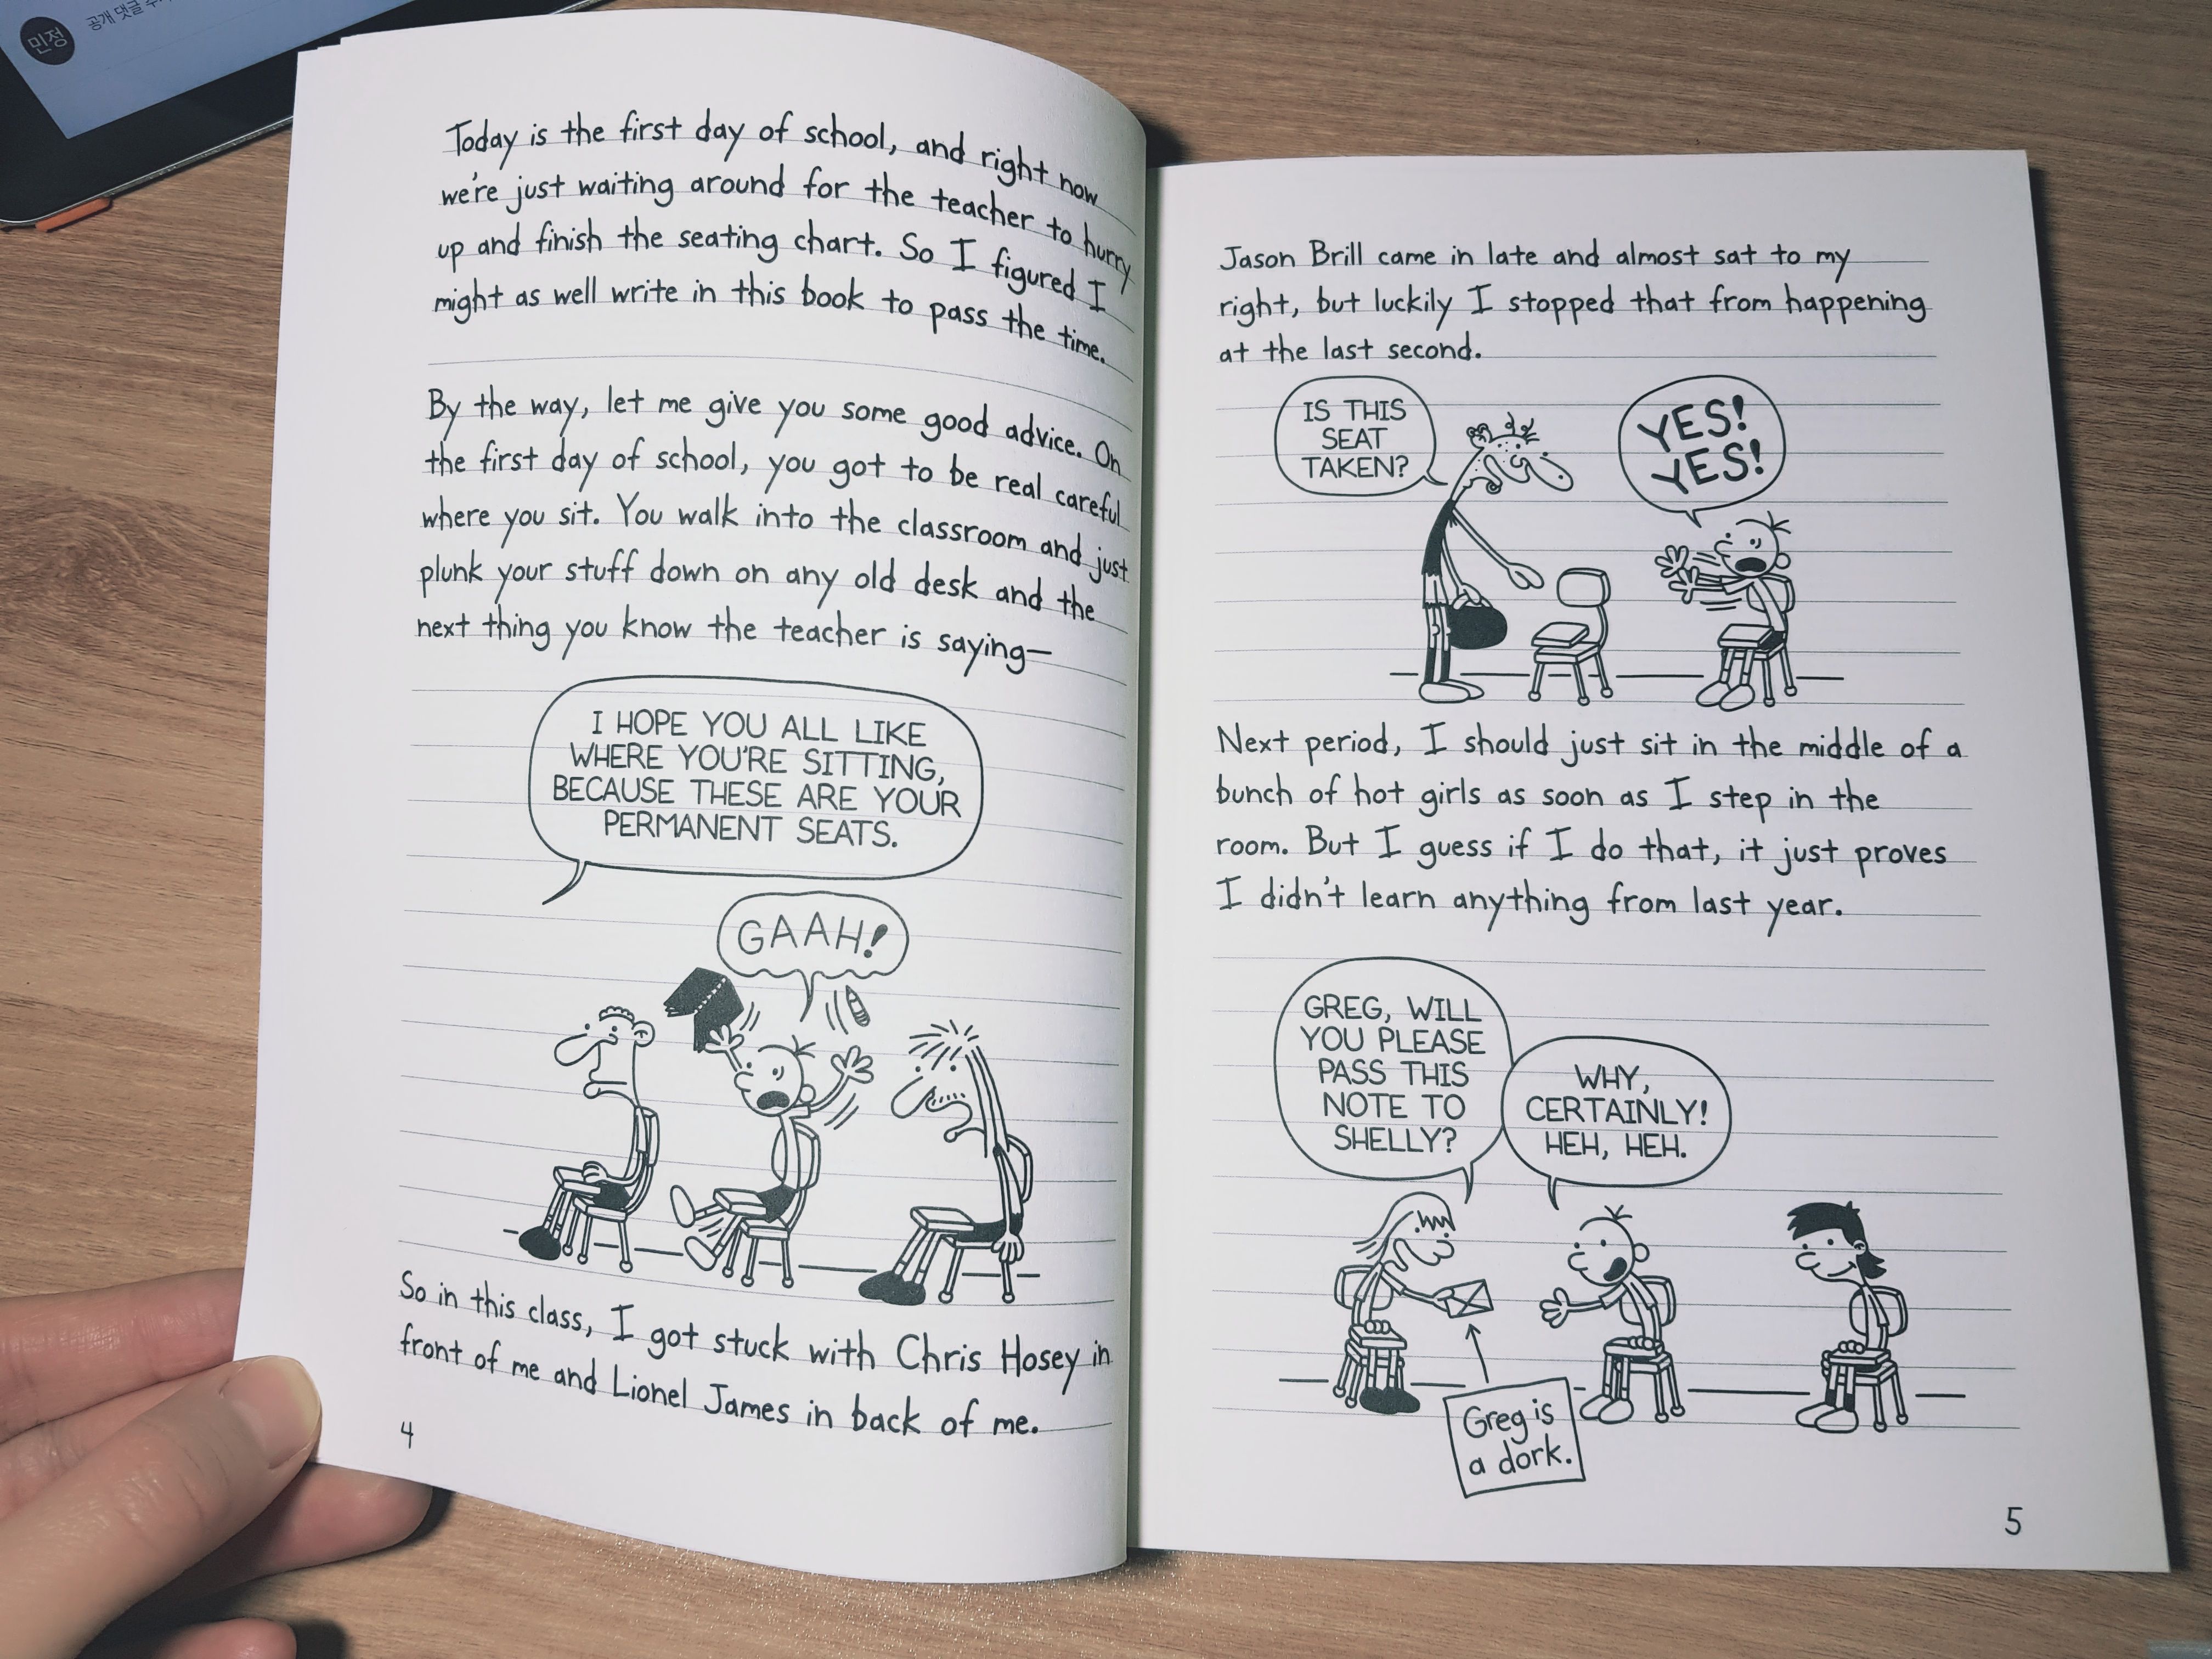 민정
공개 댓글
Today is the first day of school, and right now
we're just waiting around for the teacher to hurry
up and finish the seating chart. So I figured I
might as well write in this book to pass the time.
By the way, let me give you some good advice. On
the first day of school, you got to be real careful
where you sit. You walk into the classroom and just
plunk your stuff down on any old desk and the
next thing you know the teacher is saying—
I HOPE YOU ALL LIKE
WHERE YOU'RE SITTING,
BECAUSE THESE ARE YOUR
PERMANENT SEATS.
GAAH!
So in this class, I got stuck with Chris Hosey in
front of me and Lionel James in back of me.
4
Jason Brill came in late and almost sat to my
right, but luckily I stopped that from happening
at the last second.
IS THIS
SEAT
TAKEN?
YES!
YES!
Next period, I should just sit in the middle of a
bunch of hot girls as soon as I step in the
room. But I guess if I do that, it just proves
I didn't learn anything from last year.
GREG, WILL
YOU PLEASE
PASS THIS
NOTE TO
SHELLY?
WHY,
CERTAINLY!
HEH, HEH.
Greg is
a dork.
5